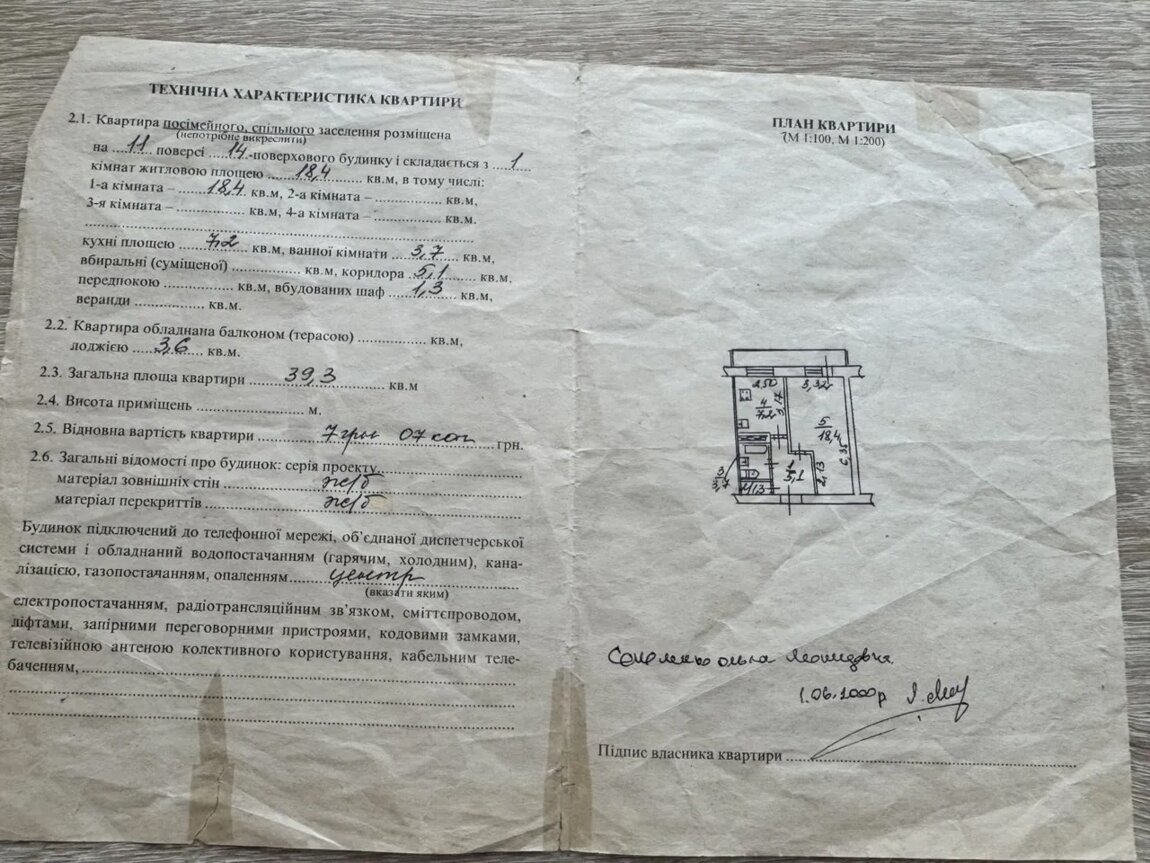 ТЕХНІЧНА ХАРАКТЕРИСТИКА КВАРТИРИ
2.1. Квартира посімейного, спільного заселення розміщена
(непотрібне викреслити)
на 11 поверсі 14-поверхового будинку і складається з 1
кімнат житловою площею 18,4 кв.м, в тому числі:
1-а кімната – 18,4 кв.м, 2-а кімната – кв.м,
3-я кімната – кв.м, 4-а кімната – кв.м.
кухні площею 7,2 кв.м, ванної кімнати 3,7 кв.м,
вбиральні (суміщеної) кв.м, коридора 5,1 кв.м,
передпокою кв.м, вбудованих шаф 1,3 кв.м,
веранди кв.м.
2.2. Квартира обладнана балконом (терасою) кв.м,
лоджією 3,6 кв.м.
2.3. Загальна площа квартири 39,3 кв.м
2.4. Висота приміщень м.
2.5. Відновна вартість квартири 7 грн 07 коп грн.
2.6. Загальні відомості про будинок: серія проекту
матеріал зовнішніх стін ж/б
матеріал перекриттів ж/б
Будинок підключений до телефонної мережі, об’єднаної диспетчерської
системи і обладнаний водопостачанням (гарячим, холодним), кана-
лізацією, газопостачанням, опаленням центр
(вказати яким)
електропостачанням, радіотрансляційним зв’язком, сміттєпроводом,
ліфтами, запірними переговорними пристроями, кодовими замками,
телевізійною антеною колективного користування, кабельним теле-
баченням,
ПЛАН КВАРТИРИ
(М 1:100, М 1:200)
2,50 3,32
3,17
4
7,2
5
18,4
6,35
3
3,7
1
5,1
2,13
1,3
Ольга Леонидовна
1.06.2000р
Підпис власника квартири